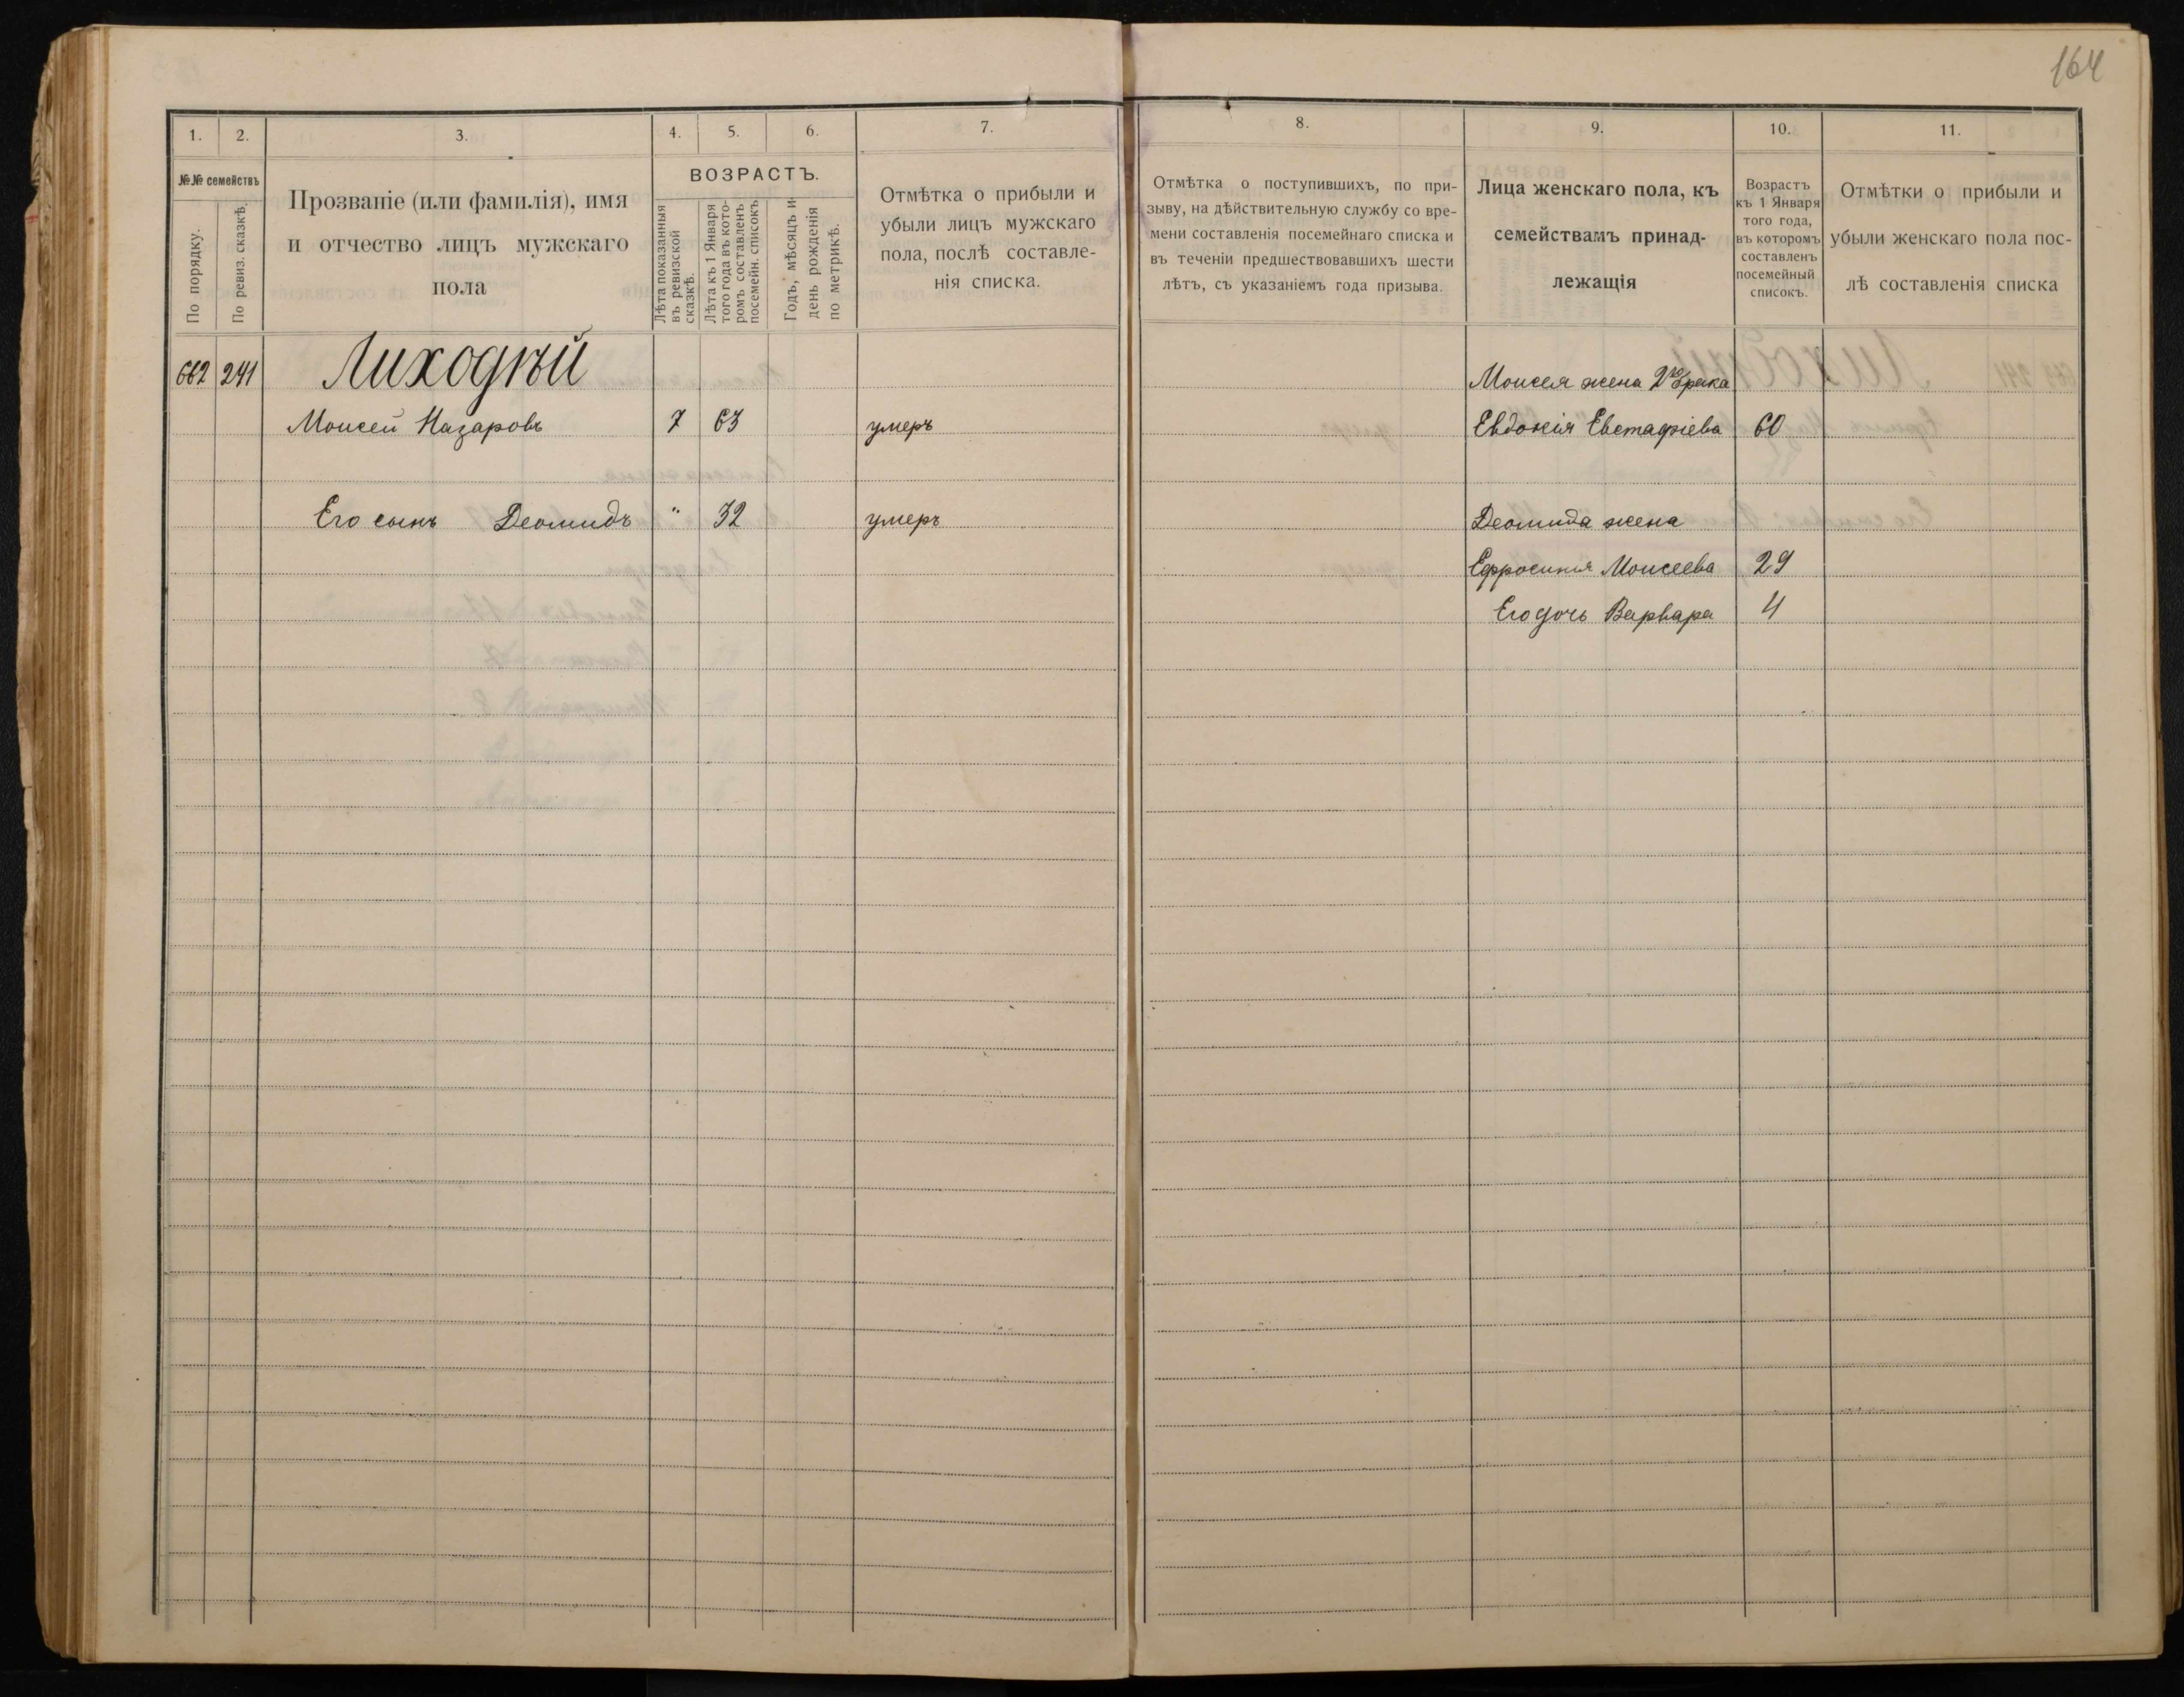 164
1. 2. 3. 4. 5. 6. 7. 8. 9. 10. 11.
№№ семействъ
По порядку.
По ревиз. сказкѣ.
Прозваніе (или фамилія), имя
и отчество лицъ мужскаго
пола
ВОЗРАСТЪ.
Лѣта показанныя
въ ревизской
сказкѣ.
Лѣта къ 1 Января
того года въ кото-
ромъ составленъ
посемейн. списокъ
Годъ, мѣсяцъ и
день рожденія
по метрикѣ.
Отмѣтка о прибыли и
убыли лицъ мужскаго
пола, послѣ составле-
нія списка.
Отмѣтка о поступившихъ, по при-
зыву, на дѣйствительную службу со вре-
мени составленія посемейнаго списка и
въ теченіи предшествовавшихъ шести
лѣтъ, съ указаніемъ года призыва.
Лица женскаго пола, къ
семействамъ принад-
лежащія
Возрастъ
къ 1 Января
того года,
въ которомъ
составленъ
посемейный
списокъ.
Отмѣтки о прибыли и
убыли женскаго пола пос-
лѣ составленія списка
662 241 Лиходѣй Моисея жена 2го брака
Моисей Назаровъ 7 63 умеръ Евдокія Евстафіева 60
Его сынъ Деомидъ " 32 умеръ Деомида жена
Ефросинія Моисеева 29
Его дочь Варвара 4